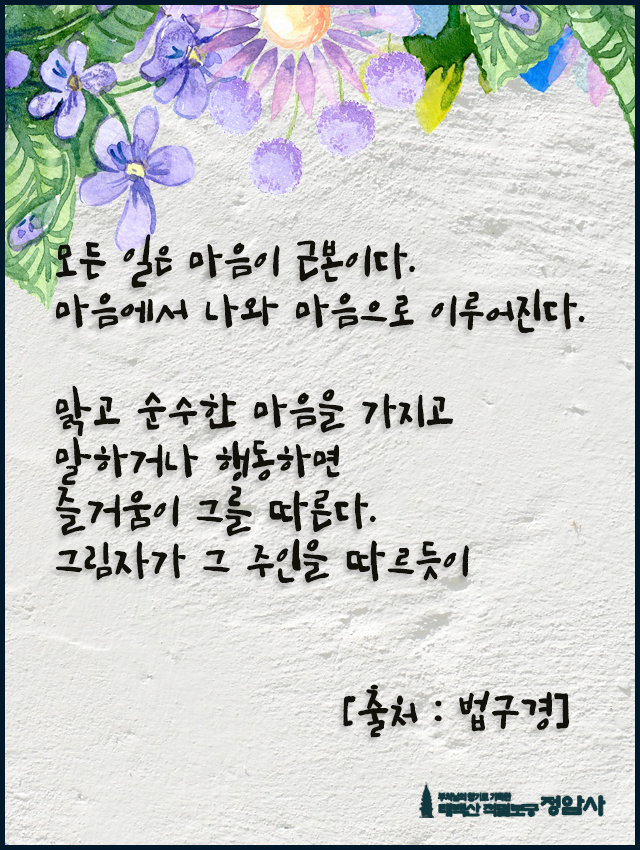 모든 일은 마음이 근본이다.
마음에서 나와 마음으로 이루어진다.
맑고 순수한 마음을 가지고
말하거나 행동하면
즐거움이 그를 따른다.
그림자가 그 주인을 따르듯이
[출처 : 법구경]
태백산 적멸보궁 정암사